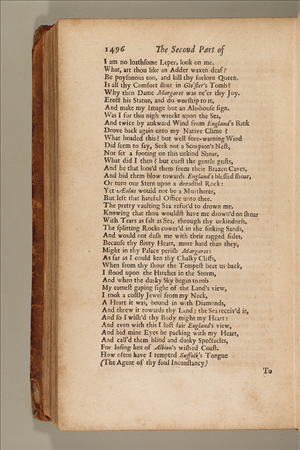 1496 The Second Part of
I am no loathsome Leper, look on me.
What, art thou like an Adder waxen deaf?
Be poysonous too, and kill thy forlorn Queen.
Is all thy Comfort shut in Glo'ster's Tomb?
Why then Dame Margaret was ne'er thy Joy.
Erect his Statue, and do worship to it,
And make my Image but an Ale-house sign.
Was I for this nigh wreckt upon the Sea,
And twice by aukward Wind from England's Bank
Drove back again unto my Native Clime?
What boaded this? but well fore-warning Wind
Did seem to say, Seek not a Scorpion's Nest,
Nor set a footing on this unkind Shoar.
What did I then? but curst the gentle gusts,
And he that loos'd them from their Brazen Caves,
And bid them blow towards England's blessed shoar,
Or turn our Stern upon a dreadful Rock:
Yet Æolus would not be a Murtherer,
But left that hateful Office unto thee.
The pretty vaulting Sea refus'd to drown me,
Knowing that thou wouldst have me drown'd on shoar
With Tears as salt as Sea, through thy unkindness.
The splitting Rocks cower'd in the sinking Sands,
And would not dash me with their ragged sides,
Because thy flinty Heart, more hard than they,
Might in thy Palace perish Margaret:
As far as I could ken thy Chalky Cliffs,
When from thy shoar the Tempest beat us back,
I stood upon the Hatches in the Storm,
And when the dusky Sky began to rob
My earnest gaping sight of thy Land's view,
I took a costly Jewel from my Neck,
A Heart it was, bound in with Diamonds,
And threw it towards thy Land; the Sea receiv'd it,
And so I wish'd thy Body might my Heart:
And even with this I lost fair England's view,
And bid mine Eyes be packing with my Heart,
And call'd them blind and dusky Spectacles,
For losing ken of Albion's wished Coast.
How often have I tempted Suffolk's Tongue
(The Agent of thy foul Inconstancy)
To